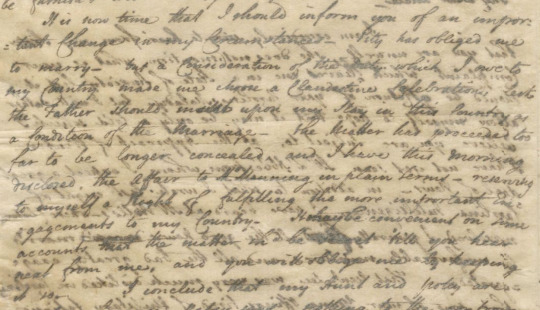 be furnish'd
It is now time that I should inform you of an impor-
=tant Change in my Circumstances - Pity has obliged me
to marry - but a Consideration of the duty which I owe to
my Country made me choose a Clandestine Celebration, lest
the Father should insist upon my Stay in this Country as
a Condition of the Marriage - The Matter has proceeded too
far to be longer concealed and I have this morning
disclosed the Affair to Mr Manning in plain terms - reserving
to myself a Right of fulfilling the more important en-
gagements to my Country - It may be convenient on some
accounts that the matter sho'd be secret till you hear
next from me, and you will oblige me by keeping
it so - I conclude that my Friend and Polly are